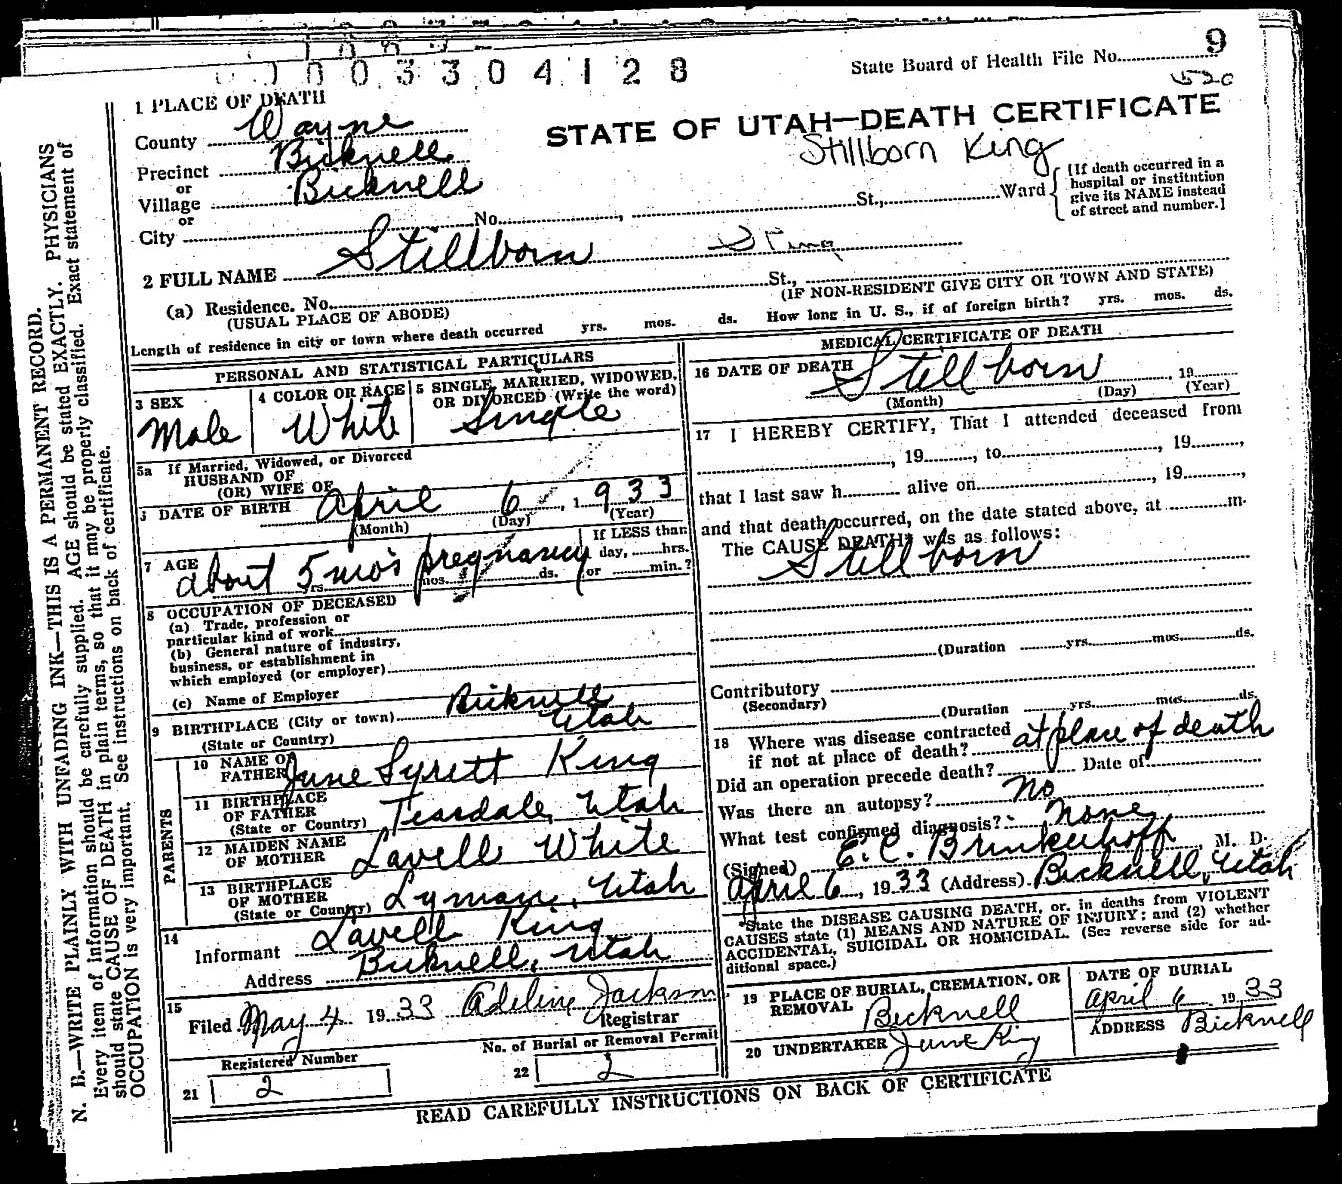 0003304128
State Board of Health File No. 9
520
1 PLACE OF DEATH
STATE OF UTAH—DEATH CERTIFICATE
County Wayne
Stillborn King
Precinct Bicknell
or
Village Bicknell
or
City No. , St., Ward
[If death occurred in a
hospital or institution
give its NAME instead
of street and number.]
2 FULL NAME Stillborn King
(a) Residence. No. St.,
(USUAL PLACE OF ABODE) (IF NON-RESIDENT GIVE CITY OR TOWN AND STATE)
Length of residence in city or town where death occurred yrs. mos. ds. How long in U. S., if of foreign birth? yrs. mos. ds.
PERSONAL AND STATISTICAL PARTICULARS
3 SEX
Male
4 COLOR OR RACE
White
5 SINGLE, MARRIED, WIDOWED,
OR DIVORCED (Write the word)
Single
5a If Married, Widowed, or Divorced
HUSBAND OF
(OR) WIFE OF
DATE OF BIRTH April 6, 1933
(Month) (Day) (Year)
7 AGE about 5 mo's pregnancy
yrs. mos. ds.
If LESS than
day, hrs.
or min.?
8 OCCUPATION OF DECEASED
(a) Trade, profession or
particular kind of work
(b) General nature of industry,
business, or establishment in
which employed (or employer)
(c) Name of Employer
9 BIRTHPLACE (City or town) Bicknell
(State or Country) Utah
PARENTS
10 NAME OF
FATHER June Syrett King
11 BIRTHPLACE
OF FATHER
(State or Country) Teasdale, Utah
12 MAIDEN NAME
OF MOTHER Lavell White
13 BIRTHPLACE
OF MOTHER
(State or Country) Lyman, Utah
14
Informant Lavell King
Address Bicknell, Utah
15
Filed May 4 1933 Adeline Jackson
Registrar
Registered Number
21 2
No. of Burial or Removal Permit
22 2
MEDICAL CERTIFICATE OF DEATH
16 DATE OF DEATH Stillborn , 19
(Month) (Day) (Year)
17 I HEREBY CERTIFY, That I attended deceased from
, 19 , to , 19 ,
that I last saw h alive on , 19 ,
and that death occurred, on the date stated above, at m.
The CAUSE DEATH* was as follows:
Stillborn
(Duration yrs. mos. ds.
Contributory
(Secondary)
(Duration yrs. mos. ds.
18 Where was disease contracted
if not at place of death? at place of death
Did an operation precede death? Date of
Was there an autopsy? No
What test confirmed diagnosis? None
(Signed) E. C. Brinkerhoff, M. D.
April 6, 1933 (Address) Bicknell, Utah
*State the DISEASE CAUSING DEATH, or, in deaths from VIOLENT
CAUSES state (1) MEANS AND NATURE OF INJURY; and (2) whether
ACCIDENTAL, SUICIDAL OR HOMICIDAL. (See reverse side for ad-
ditional space.)
19 PLACE OF BURIAL, CREMATION, OR
REMOVAL Bicknell
DATE OF BURIAL
April 6 1933
20 UNDERTAKER June King
ADDRESS Bicknell
READ CAREFULLY INSTRUCTIONS ON BACK OF CERTIFICATE
N. B.—WRITE PLAINLY WITH UNFADING INK—THIS IS A PERMANENT RECORD.
Every item of information should be carefully supplied. AGE should be stated EXACTLY. PHYSICIANS
should state CAUSE OF DEATH in plain terms, so that it may be properly classified. Exact statement of
OCCUPATION is very important. See instructions on back of certificate.